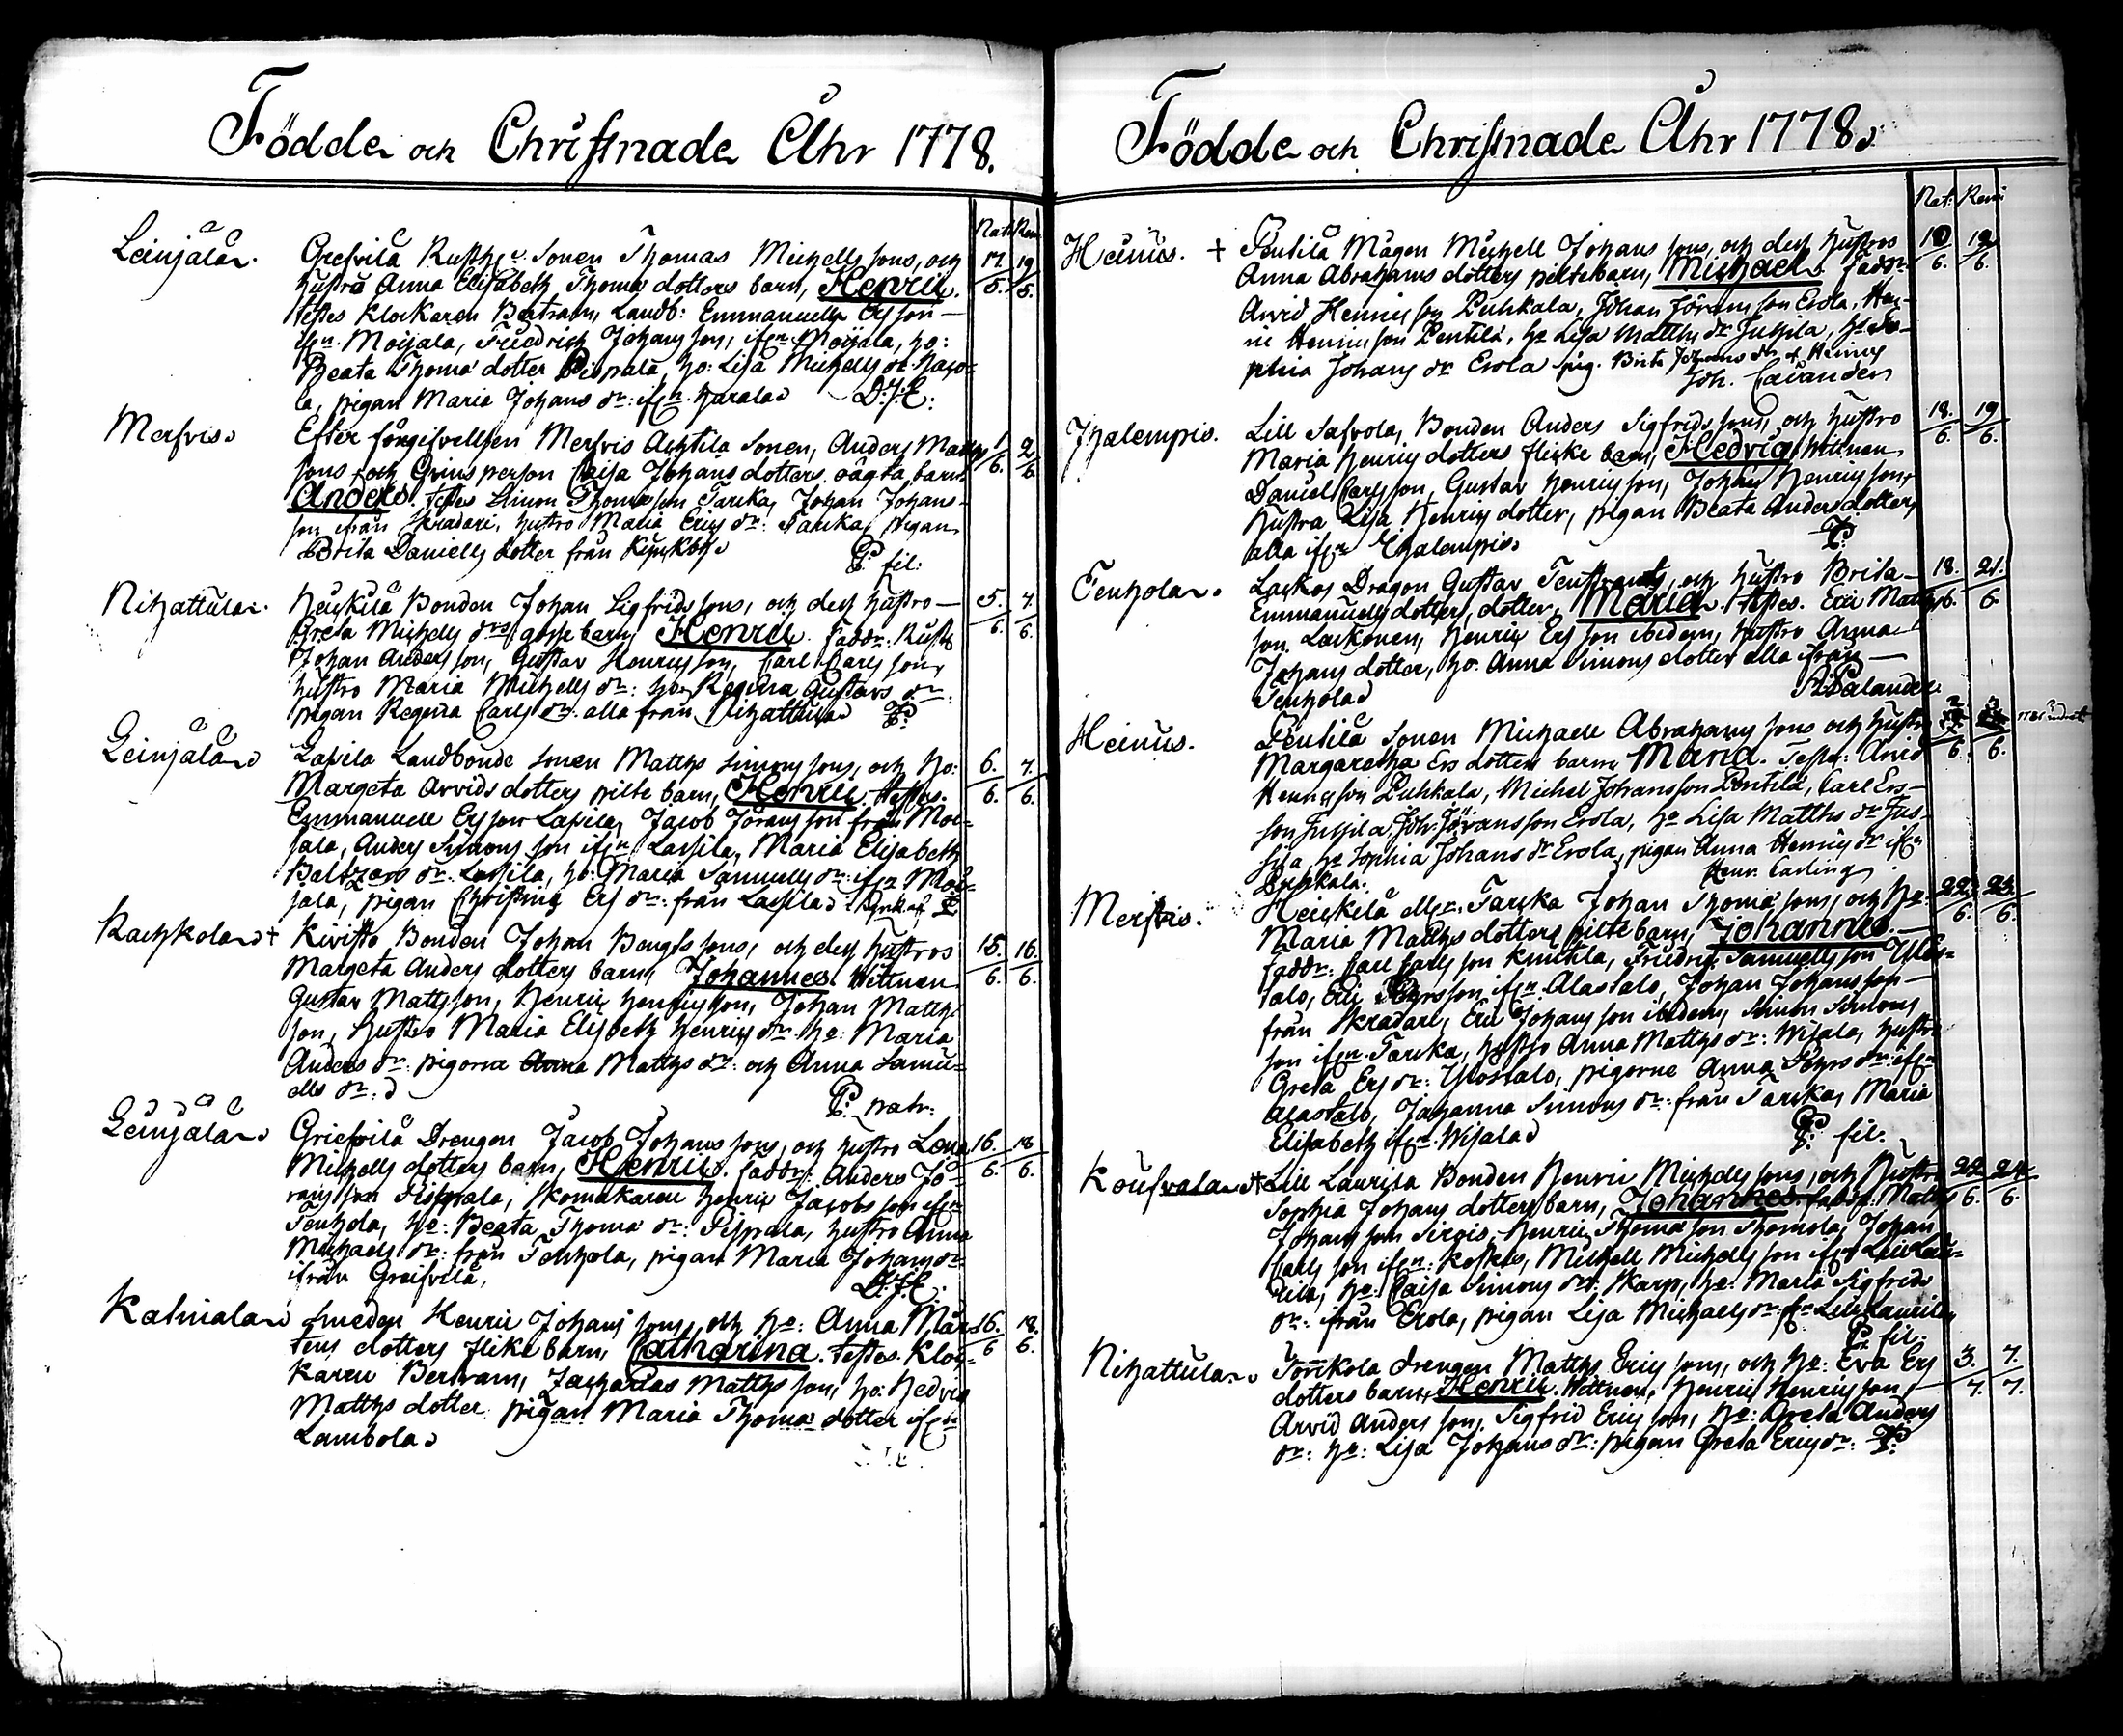 Födde och Christnade Åhr 1778.
Nat: Ren:
Leinjälä. Grefvilä Rusth: Sonen Thomas Michells sons, och 17/5. 19/5.
hustru Anna Elisabeth Thomæ dotters barn, Henric.
testes Klockaren Bertram, Landb: Emmanuell Ersson
ifrn. Moijala, Friedrich Johans son, ifrn Moijala, ho:
Beata Thomæ dotter Pispala, ho: Lisa Michells dr.
la, pigan Maria Johans dr: ifrn. Harala D.J.E:
Merfvis. Efter föregifvelsen Merfvis Achtila Sonen, Anders Matts 1/6. 2/6
sons och Qvins person Caisa Johans dotters oägta barn
Anders. testes Simon Thomæ son Tarcka, Johan Johans-
son ifrån Skradari, hustro Maria Erics dr: Tarcka, pigan
Brita Daniells dotter från P. fil:
Nihattula. Heickilä Bonden Johan Sigfrids sons, och dess hustro 5./6. 7./6.
Greta Michells drs gosse barn, Henric. Faddr. Rusth
Johan Anders son, Gustav Henrics son, Carl Carls son,
hustro Maria Michells dr: ho. Regina Gustavs dr:
pigan Regina Carls dr. alla från Nihattula P:
Leinjälä Lassila Landbonde Sonen Matths Simons sons, och ho: 6./6. 7./6.
Margeta Arvids dotters pilte barn, Henric. testes.
Emmanuell Ersson Lassila, Jacob Jörans son från Moi-
jala, Anders Simons son ifrn Lassila, Maria Elisabeth
Baltzars dr. Lassila, ho: Maria Samuells dr: ifrn Moi-
jala, pigan Christina Ers dr: från Lassila
Kachkola + Kivisto Bonden Johan Bengts sons, och dess hustros 15./6. 16./6.
Margeta Anders dotters barn, Johannes. Wittnen
Gustav Matts son, Henric Henrics son, Johan Matths
son, hustro Maria Elisbeth Henrics dr. ho: Maria
Anders dr: pigorna Anna Matths dr: och Anna Samu-
ells dr: P. patr:
Leinjälä Griefvilä Drengen Jacob Johans sons, och hustro Lena 16./6. 18/6.
Michells dotters barn, Henric. faddr: Anders Jö-
rans son Pispala, Skomakaren Henric Jacobs son ifrn
Tenhola, ho: Beata Thomæ dr: Pispala, hustro Anna
Michaels dr: från Tenhola, pigan Maria Johans dr
ifrån Greifvila, D.J.E:
Katniala Smeden Henric Johans sons, och ho: Anna Mår- 16./6 18./6.
tens dotters flike barn, Catharina. testes. Kloc-
karen Bertram, Zacharias Matths son, ho: Hedvig
Matths dotter pigan Maria Thomæ dotter ifrn
Lambola
Födde och Christnade Åhr 1778
Nat: Ren:
Heinus. + Pentilä Mågen Michell Johans sons, och dess hustros 19/6. 19/6.
Anna Abrahams dotters piltebarn, Michael. faddr.
Arvid Henrics son Puhkala, Johan Jörans son Erola, Hen-
ric Henrics son Pentilä, ho Lisa Matths dr Jussila, ho So-
phia Johans dr Erola pig. Brita Johans dr f. Heinus
Joh. Cavander
Jhalempis. Lill Safvola, Bonden Anders Sigfrids sons, och hustro 18./6. 19/6.
Maria Henrics dotters flicke barn, Hedvig. Wittnen
Daniel Carls son, Gustav Henrics son, Johan Henrics son,
hustro Lisa Henrics dotter, pigan Beata Anders dotter,
alla ifrn Ehalempis P:
Tenhola. Lackos Dragon Gustav Tenstrands, och hustro Brita 18./6. 21./6
Emmanuells dotters, dotter, Maria. testes. Eric Matths
son Lackonen, Henric Ers son ibidem, hustro Anna
Johans dotter, ho. Anna Simons dotter alla ifrån
Tenhola P. Palander.
Heinus. Pentilä Sonen Michaell Abrahams sons och hustro 6. 6.
Margaretha Ers dotters barn Maria. Testes: Arvid
Henrics son Puhkala, Michel Johansson Pentilä, Carl Ers-
son Jussila, Joh: Jöransson Erola, ho Lisa Matths dr Jus-
sila, ho Sophia Johans dr Erola, pigan Anna Henrics dr ifrn
Puhkala. Henr. Carling
Merfvis. Heickilä Tarcka Johan Thomæ sons, och ho: 22./6. 23./6.
Maria Matths dotters pilte barn, Johannes.
faddr: Carl Carls son Knuttila, Friedric Samuells son Ylös-
talo, Eric ifrn Alastalo, Johan Johansson
från Skradari, Eric Johans son ibidem, Simon Simons
son ifrn Tarcka, hustro Anna Matths dr: Wijala, hustro
Greta Ers dr: Ylostalo, pigorne Anna dr: ifrn
Alastalo, Johanna Simons dr: från Tarcka, Maria
Elisabeth ifrn Wijala P: fil.
Koufvala + Lill Laurila Bonden Henric Michells sons, och hustro 22./6. 24./6.
Sophia Johans dotters barn, Johannes. faddr: Matths
Johans son Sirois, Henric Thomæ son Thomola, Johan
Carls son ifrn: Koskis, Michell Michells son ifrn Lill Lau-
rila, ho: Caisa Simons dr: Skarp, ho: Maria Sigfrids
dr: ifrån Erola, pigan Lisa Michaels dr: fr: Lill Laurila
P: fil:
Nihattula. Tonkola drengen Matths Erics sons, och ho: Eva Ers 3./7. 7./7.
dotters barn, Henric. Wittnen, Henric Henrics son,
Arvid Anders son, Sigfrid Erics son, ho: Greta Anders
dr: ho: Lisa Johans dr: pigan Greta Erics dr: P: